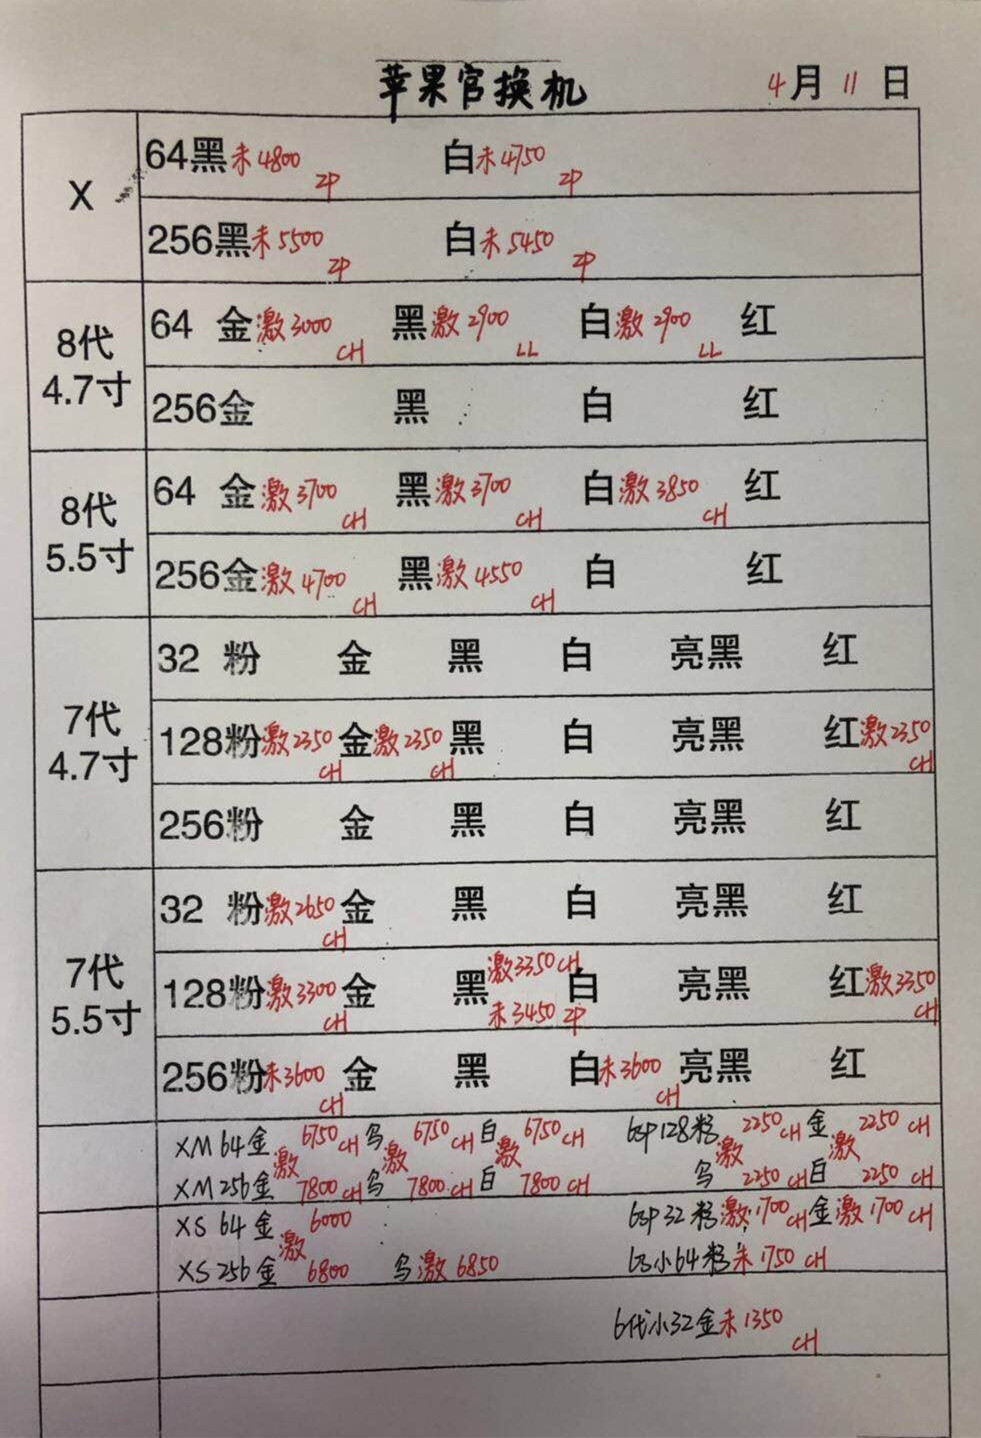 苹果官换机 4月11日
X
64黑未4800 ZP 白未4750 ZP
256黑未5500 ZP 白未5450 ZP
8代
4.7寸
64 金激3000 CH 黑激2900 LL 白激2900 LL 红
256金 黑 白 红
8代
5.5寸
64 金激3700 CH 黑激3700 CH 白激3850 CH 红
256金激4700 CH 黑激4550 CH 白 红
7代
4.7寸
32 粉 金 黑 白 亮黑 红
128粉激2350 CH 金激2350 CH 黑 白 亮黑 红激2350 CH
256粉 金 黑 白 亮黑 红
7代
5.5寸
32 粉激2650 CH 金 黑 白 亮黑 红
128粉激3300 CH 金 黑激3350 CH 未3450 ZP 白 亮黑 红激3350 CH
256粉未3600 CH 金 黑 白未3600 CH 亮黑 红
XM 64金激6750 CH 乌激6750 CH 白激6750 CH 6sp128粉激2250 CH 金激2250 CH
XM 256金 7800 CH 乌 7800 CH 白 7800 CH 乌 2250 CH 白 2250 CH
XS 64金激6000 6sp32粉激1700 CH 金激1700 CH
XS 256金 6800 乌激6850 6s小64粉未1750 CH
6代小32金未1350 CH